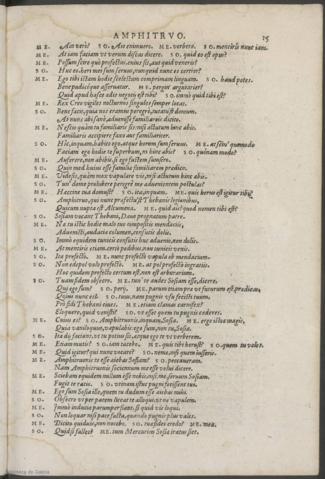 AMPHITRVO. 15
ME. Ain verò? SO. Aio enimuero. ME. verbero. SO. mentiris nunc iam.
ME. At iam faciam vt verum dicas dicere. SO. quid eo est opus?
ME. Possum scire quò profectus, cuius sis, aut quid veneris?
SO. Huc eo. heri mei sum seruus, nunquid nunc es certior?
ME. Ego tibi istam hodie scelestam comprimam linguam. SO. haud potes.
Bene pudiceque asseruatur. ME. pergin' argutarier?
Quid apud hasce ædes negoti est tibi? SO. imò quid tibi est?
ME. Rex Creo vigiles nocturnos singulos semper locat.
SO. Bene facit, quia nos eramus peregrè, tutatust domum.
At nunc abi sanè, aduenisse familiares dicito.
ME. Nescio quàm tu familiaris sis: nisi actutum hinc abis,
Familiaris accipiere faxo aut familiariter.
SO. Hic, inquam, habito ego, atque horum sum seruus. ME. at scin' quomodo
Faciam ego hodie te superbum, ni hinc abis? SO. quónam modo?
ME. Auferere, non abibis, si ego fustem sumsero.
SO. Quin med huius esse familiæ familiarem prædico.
ME. Videsis, quàm mox vapulare vis, nisi actutum hinc abis.
SO. Tun' domo prohibere peregrè me aduenientem postulas?
ME. Hæccine tua domust? SO. ita, inquam. ME. quis herus est igitur tibi?
SO. Amphitruo, qui nunc præfectust Thebanis legionibus,
Quicum nupta est Alcumena. ME. quid ais? quid nomen tibi est?
SO. Sosiam vocant Thebani, Dauo prognatum patre.
ME. Næ tu istic hodie malo tuo compositis mendaciis,
Aduenisti, audaciæ columen, consutis dolis.
SO. Immò equidem tunicis consutis huc aduenio, non dolis.
ME. At mentiris etiam: certò pedibus, non tunicis venis.
SO. Ita profectò. ME. nunc profectò vapula ob mendacium.
SO. Non edepol volo profectò. ME. at pol profectò ingratiis.
Hoc quidem profectò certum est, non est arbitrarium.
SO. Tuam fidem obsecro. ME. tun' te audes Sosiam esse, dicere,
Qui ego sum? SO. perij. ME. parum etiam præ vt futurum est, prædicas,
Quoius nunc es? SO. tuus, nam pugnis vsu fecisti tuum.
Pro fidē Thebani ciues. ME. etiam clamas carnufex?
Eloquere, quid venisti? SO. vt esset quem tu pugnis cæderes.
ME. Cuius es? SO. Amphitruonis, inquam, Sosia. ME. ergo istoc magis,
Quia vaniloquus, vapulabis: ego sum, non tu, Sosia.
SO. Ita dij faciant, vt tu potius sis, atque ego te vt verberem.
ME. Etiam mutis? SO. iam tacebo. ME. quis tibi herust? SO. quem tu voles.
ME. Quid igitur? qui nunc vocare? SO. nemo, nisi quem iusseris.
ME. Amphitruonis te esse aiebas Sosiam? SO. peccaueram.
Nam Amphitruonis socienum me esse volui dicere.
ME. Sciebam equidem nullum esse nobis, nisi me, seruum Sosiam.
Fugit te ratio. SO. vtinam istuc pugni fecissent tui.
ME. Ego sum Sosia ille, quem tu dudum esse aiebas mihi.
SO. Obsecro vt per pacem liceat te alloqui, vt ne vapulem.
ME. Immò induciæ parumper fiant, si quid vis loqui.
SO. Non loquar nisi pace facta, quando pugnis plus vales.
ME. Dicito quiduis, non nocebo. SO. tuæ fidei credo? ME. meæ.
SO. Quid si falles? ME. tum Mercurius Sosiæ iratus siet.